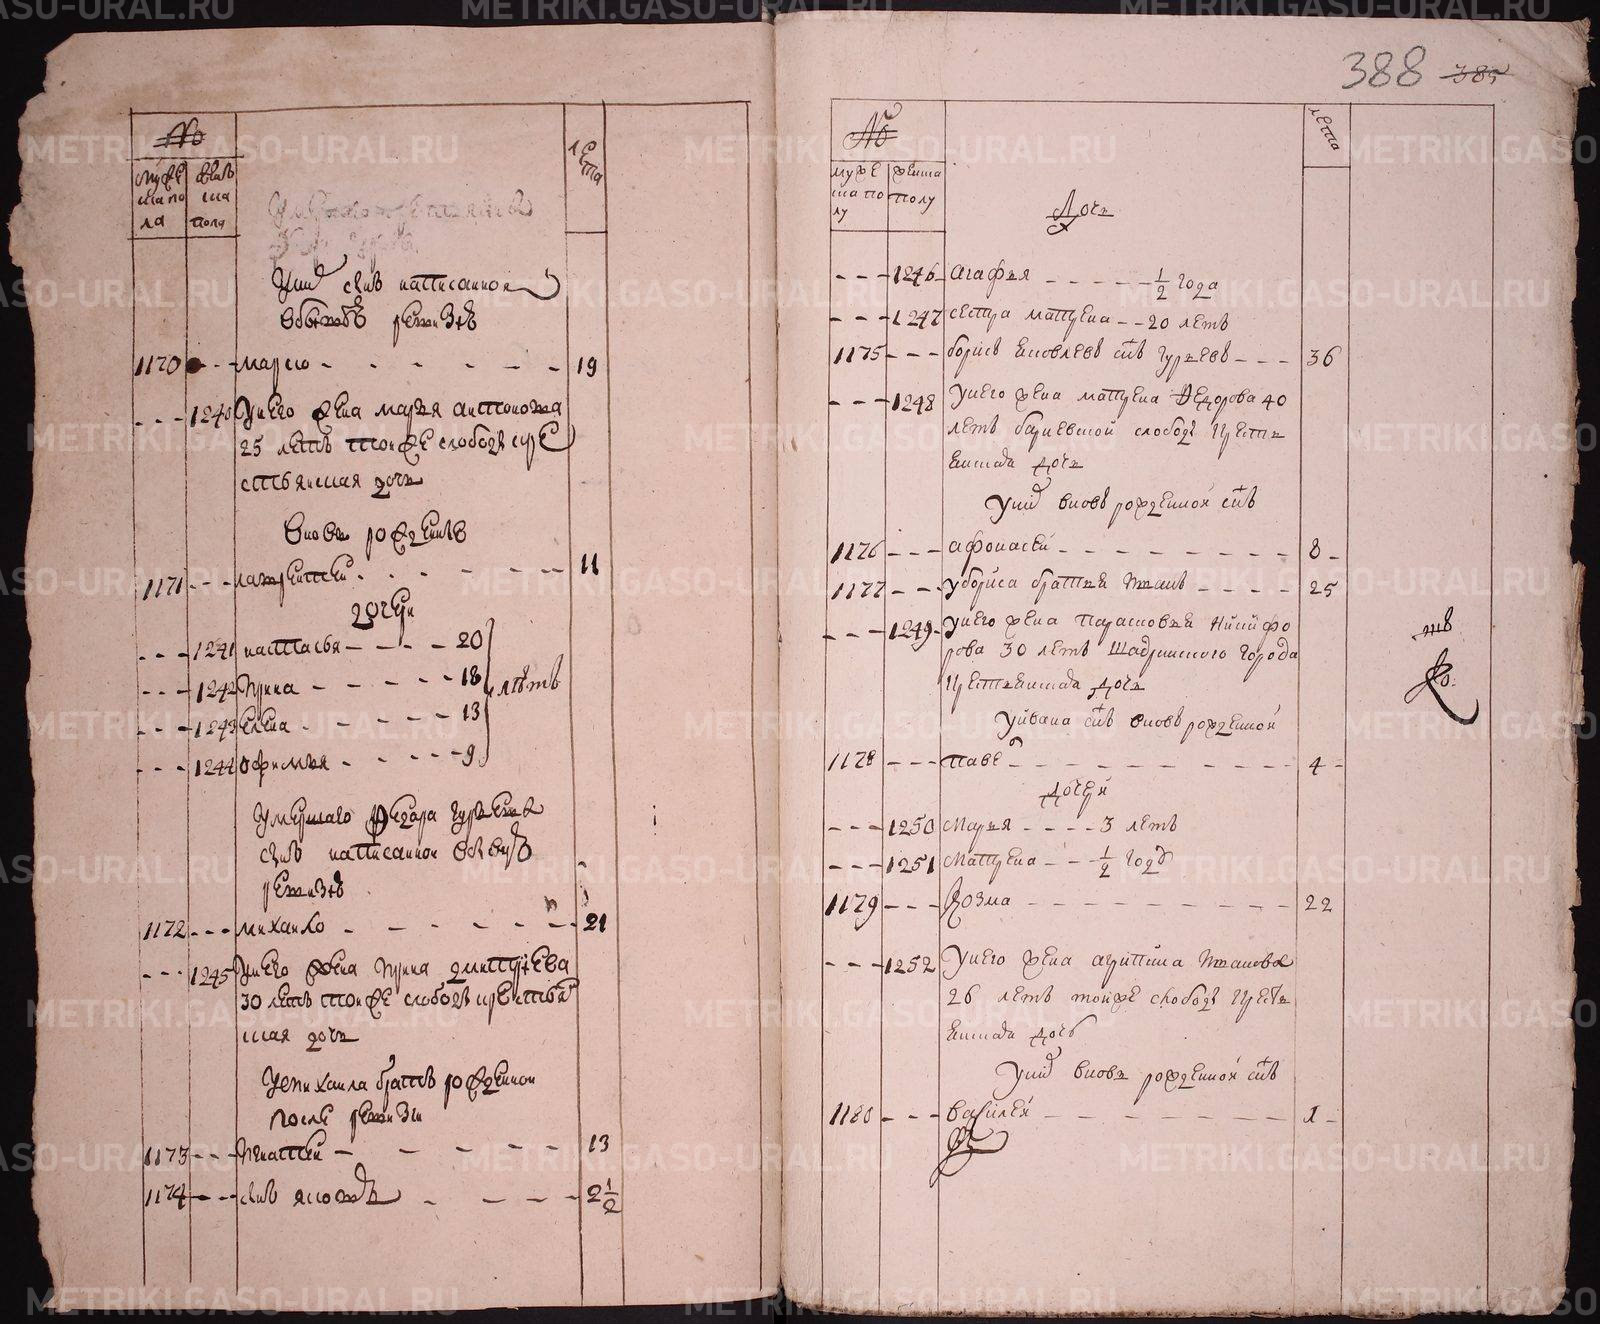 388 385
№
мужеска пола
женска пола
лета
У них сынъ написанной
в бытность ревизiи
1170 - - - марко - - - - - - 19
- - - 1240 у него жена марья антонова
25 летъ той же слободы кре
стьянская дочь
вновь рожденные
1171 - - - лаврентей - - - - - 11
дочери
- - - 1241 настасья - - - - 20
- - - 1242 - - - - - 18 летъ
- - - 1243 елена - - - - - 13
- - - 1244 офимья - - - - 9
умершаго федора гурьева
сынъ написанной в бывую
ревизiю
1172 - - - михаило - - - - - - - 21
- - - 1245 у него жена дмитрева
30 летъ той же слободы крестья
ская дочь
У михаила братъ рожденной
после ревизи
1173 - - - игнатей - - - - - 13
1174 - - - сынъ яковъ - - - - 2 1/2
№
мужеска полу
женска полу
лета
Дочь
- - - 1246 агафья - - - - - 1/2 года
- - - 1247 сестра матрена - - 20 летъ
1175 - - - борисъ яковлевъ снъ гурьевъ - - - 36
- - - 1248 у него жена матрена федорова 40
летъ слободы крестья
янская дочь
у них вновь рожденной снъ
1176 - - - афонасей - - - - - - - - 8 -
1177 - - - у бориса братъ иванъ - - - - 25
- - - 1249 у него жена парасковья никифо
рова 30 летъ шадринского города
крестьянская дочь
у ивана снъ вновь рожденной
1178 - - - павелъ - - - - - - - - 4 -
дочери
- - - 1250 Марья - - - - 3 летъ
- - - 1251 Матрена - - - 1/2 году
1179 - - - Козма - - - - - - - - - 22
- - - 1252 у него жена агрипина иванова
26 летъ той же слободы кресть
янская дочь
у них вновь рожденной снъ
1180 - - - василей - - - - - - - - 1 -
METRIKI.GASO-URAL.RU